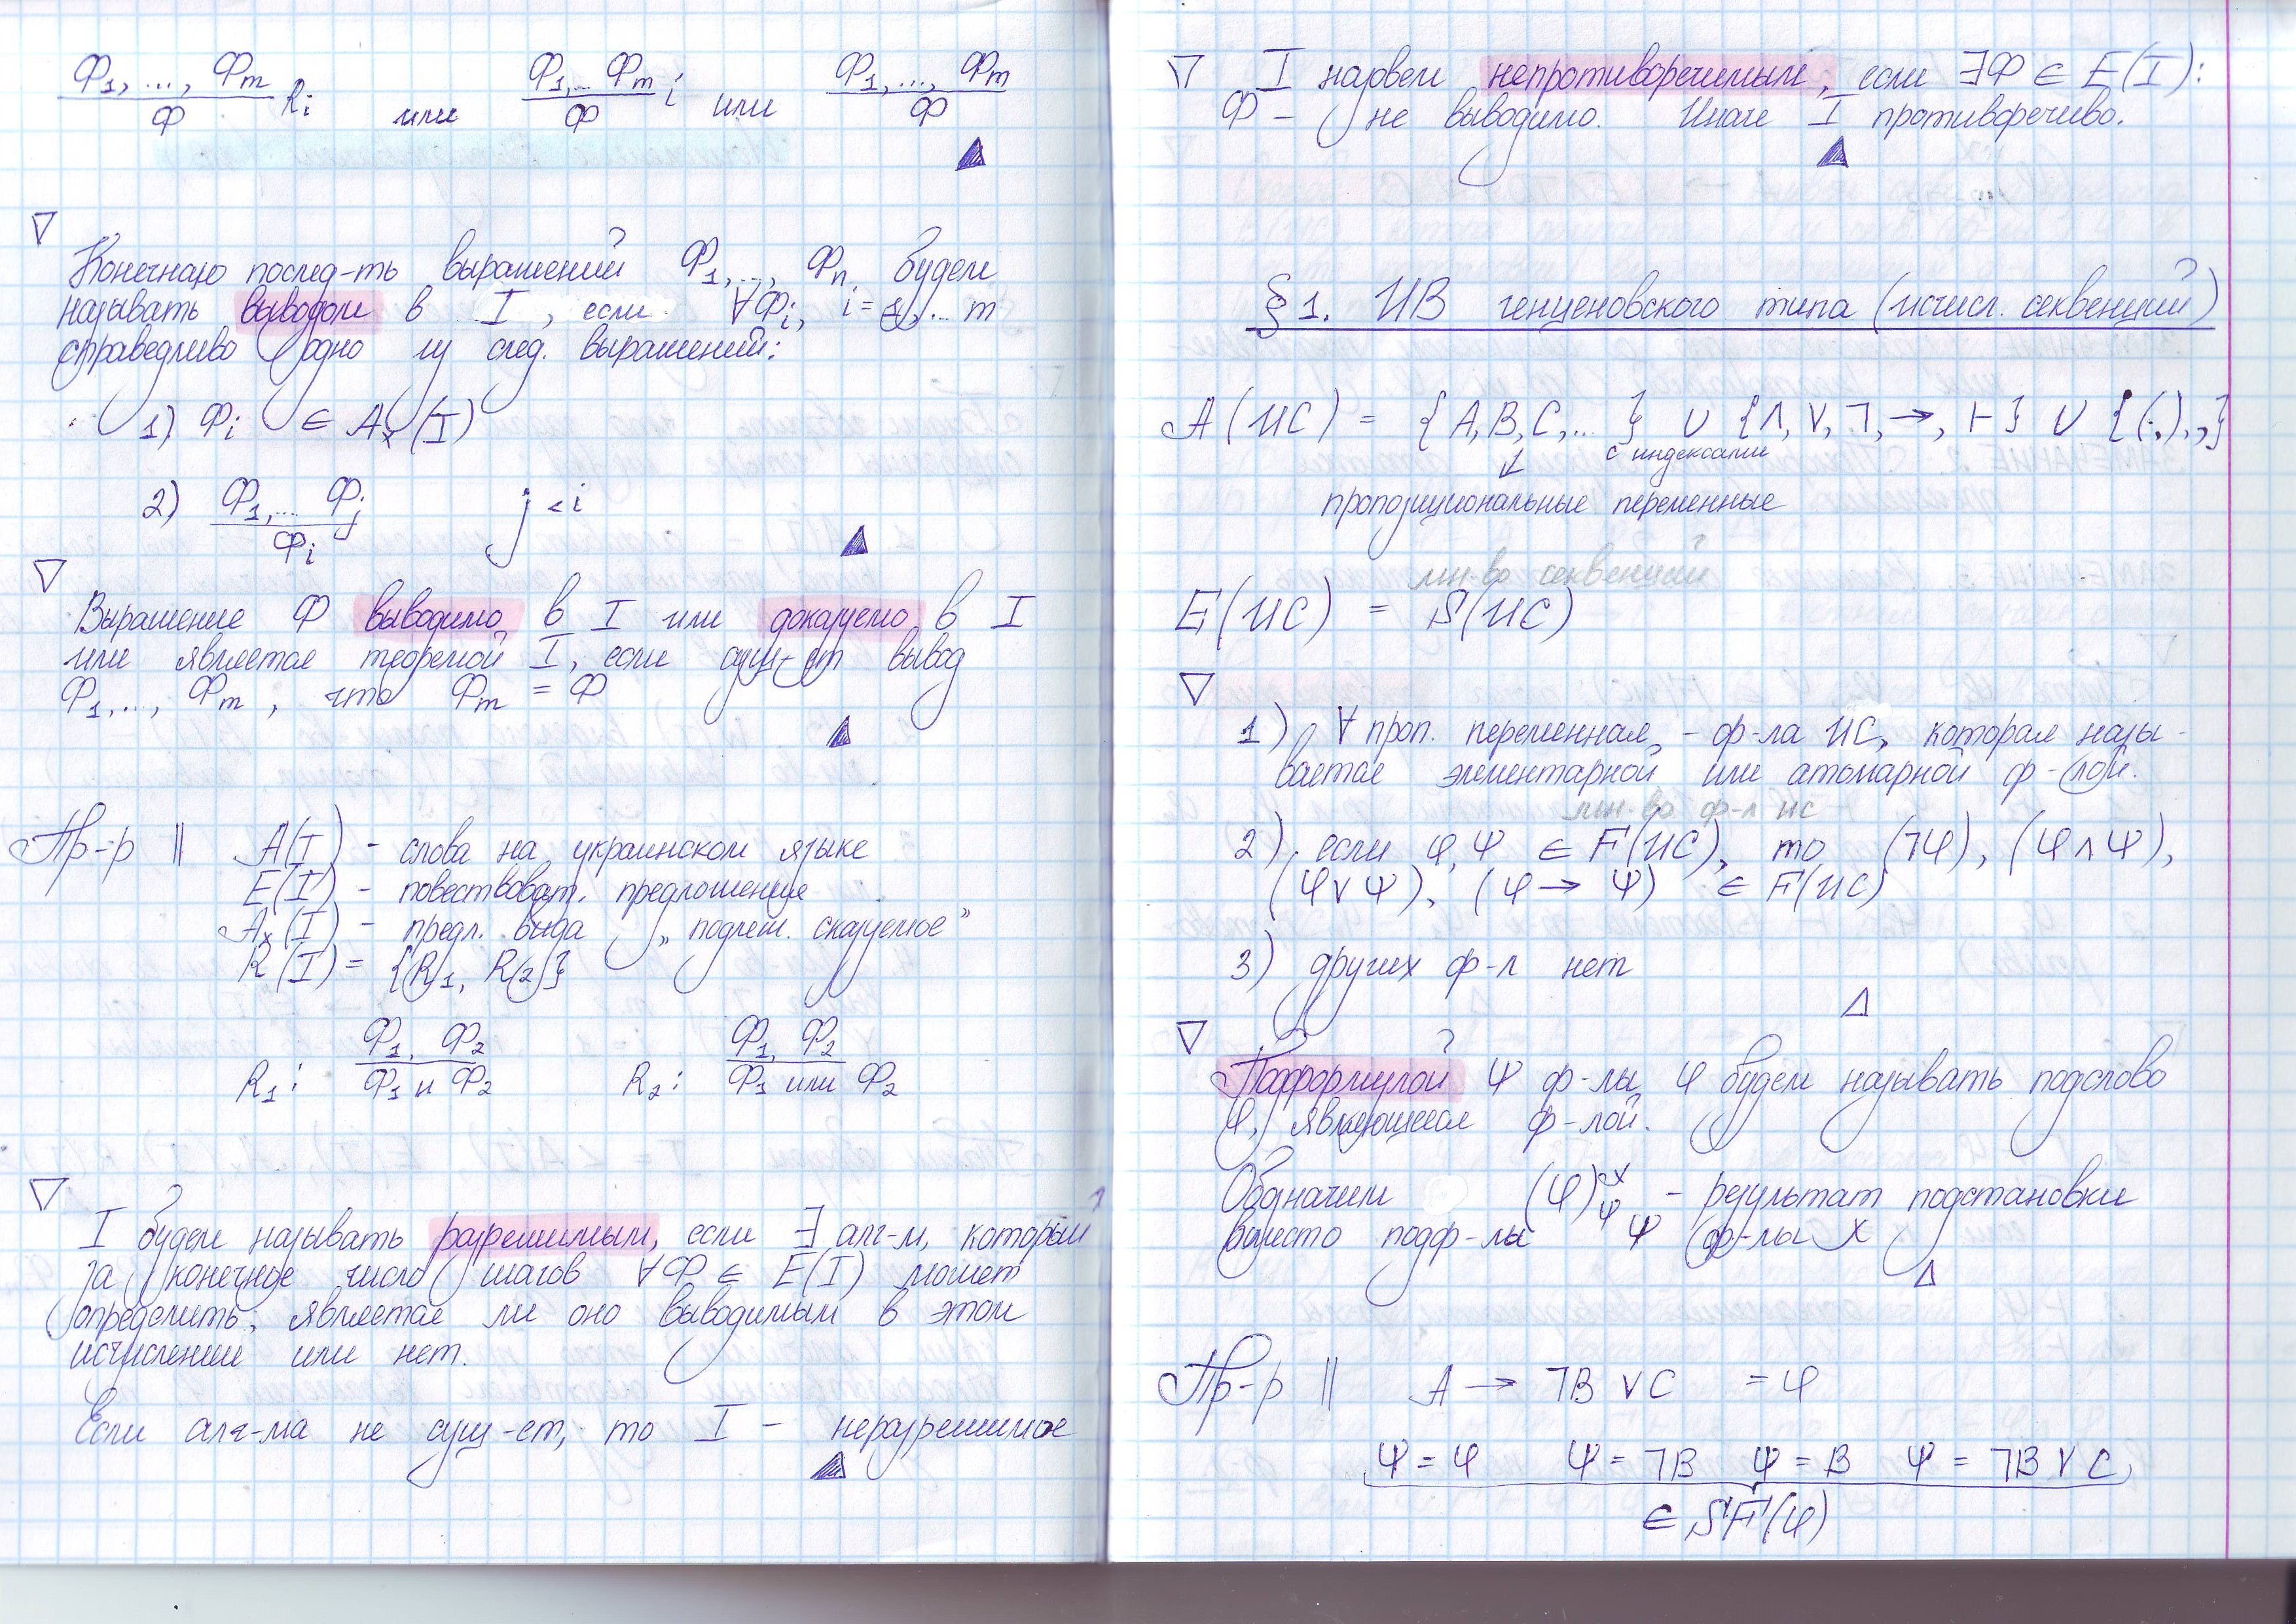 Φ₁, ..., Φₘ / Φ Rᵢ или Φ₁, ... Φₘ / Φ i или Φ₁, ..., Φₘ / Φ
▲
▽
Конечную послед-ть выражений Φ₁, ..., Φₙ будем
называть выводом в I, если ∀Φᵢ, i = 1, ... m
справедливо одно из след. выражений:
1) Φᵢ ∈ Aₓ(I)
2) Φ₁, ... Φⱼ / Φᵢ j < i
▲
▽
Выражение Φ выводимо в I или доказуемо в I
или является теоремой I, если сущ-ет вывод
Φ₁, ..., Φₘ, что Φₘ = Φ
▲
Пр-р || A(I) - слова на украинском языке
E(I) - повествоват. предложения
Aₓ(I) - предл. вида „подлеж. сказуемое"
R(I) = {R₁, R₂}
R₁: Φ₁, Φ₂ / Φ₁ и Φ₂ R₂: Φ₁, Φ₂ / Φ₁ или Φ₂
▽
I будем называть разрешимым, если ∃ алг-м, который
за конечное число шагов ∀Φ ∈ E(I) может
определить, является ли оно выводимым в этом
исчислении или нет.
Если алг-ма не сущ-ет, то I - неразрешимое
▲
▽ I назовем непротиворечивым, если ∃Φ ∈ E(I):
Φ - не выводимо. Иначе I противоречиво.
▲
§1. ИВ генценовского типа (исчисл. секвенций)
A(ИС) = {A, B, C, ...} ∪ {∧, ∨, ¬, →, ⊢} ∪ {(, ), ,}
↓ с индексами
пропозициональные переменные
мн-во секвенций
E(ИС) = S(ИС)
▽
1) ∀ проп. переменная - ф-ла ИС, которая назы-
вается элементарной или атомарной ф-лой.
мн-во ф-л ис
2) если φ, ψ ∈ F(ИС), то (¬φ), (φ ∧ ψ),
(φ ∨ ψ), (φ → ψ) ∈ F(ИС)
3) других ф-л нет
△
▽
Подформулой ψ ф-лы φ будем называть подслово
φ, являющееся ф-лой.
Обозначим (φ)ᵡ_ψ - результат подстановки
вместо подф-лы ψ ф-лы χ
△
Пр-р || A → ¬B ∨ C = φ
ψ = φ ψ = ¬B ψ = B ψ = ¬B ∨ C
∈ SF(φ)